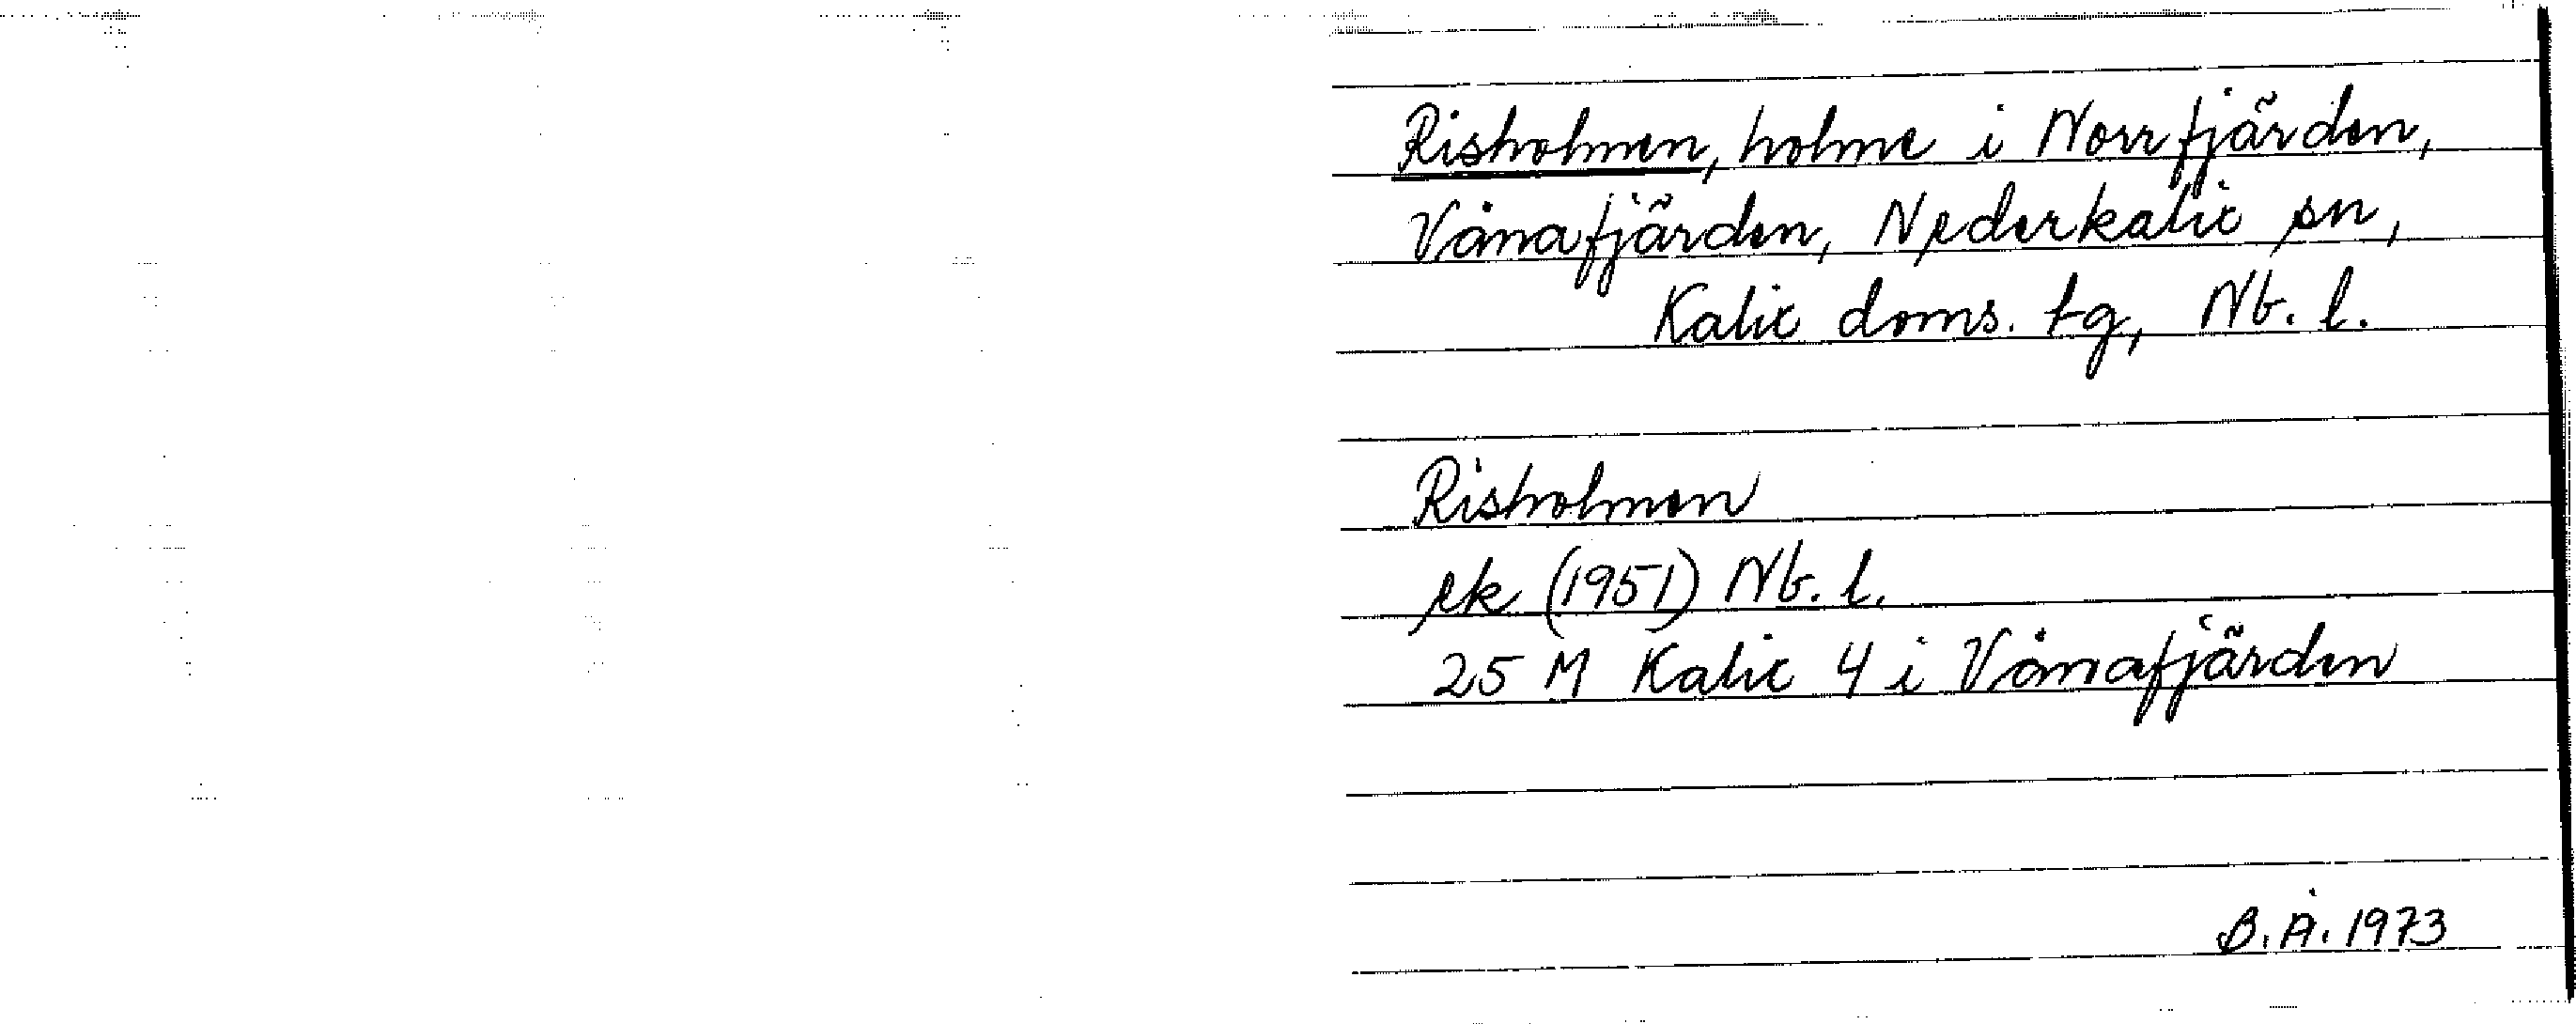 Risholmen, holme i Norrfjärden,
Vånafjärden, Nederkalix sn,
Kalix doms. tg, Nb. l.
Risholmen
ek (1951) Nb. l.
25 M Kalix 4 i Vånafjärden
B.Å. 1973